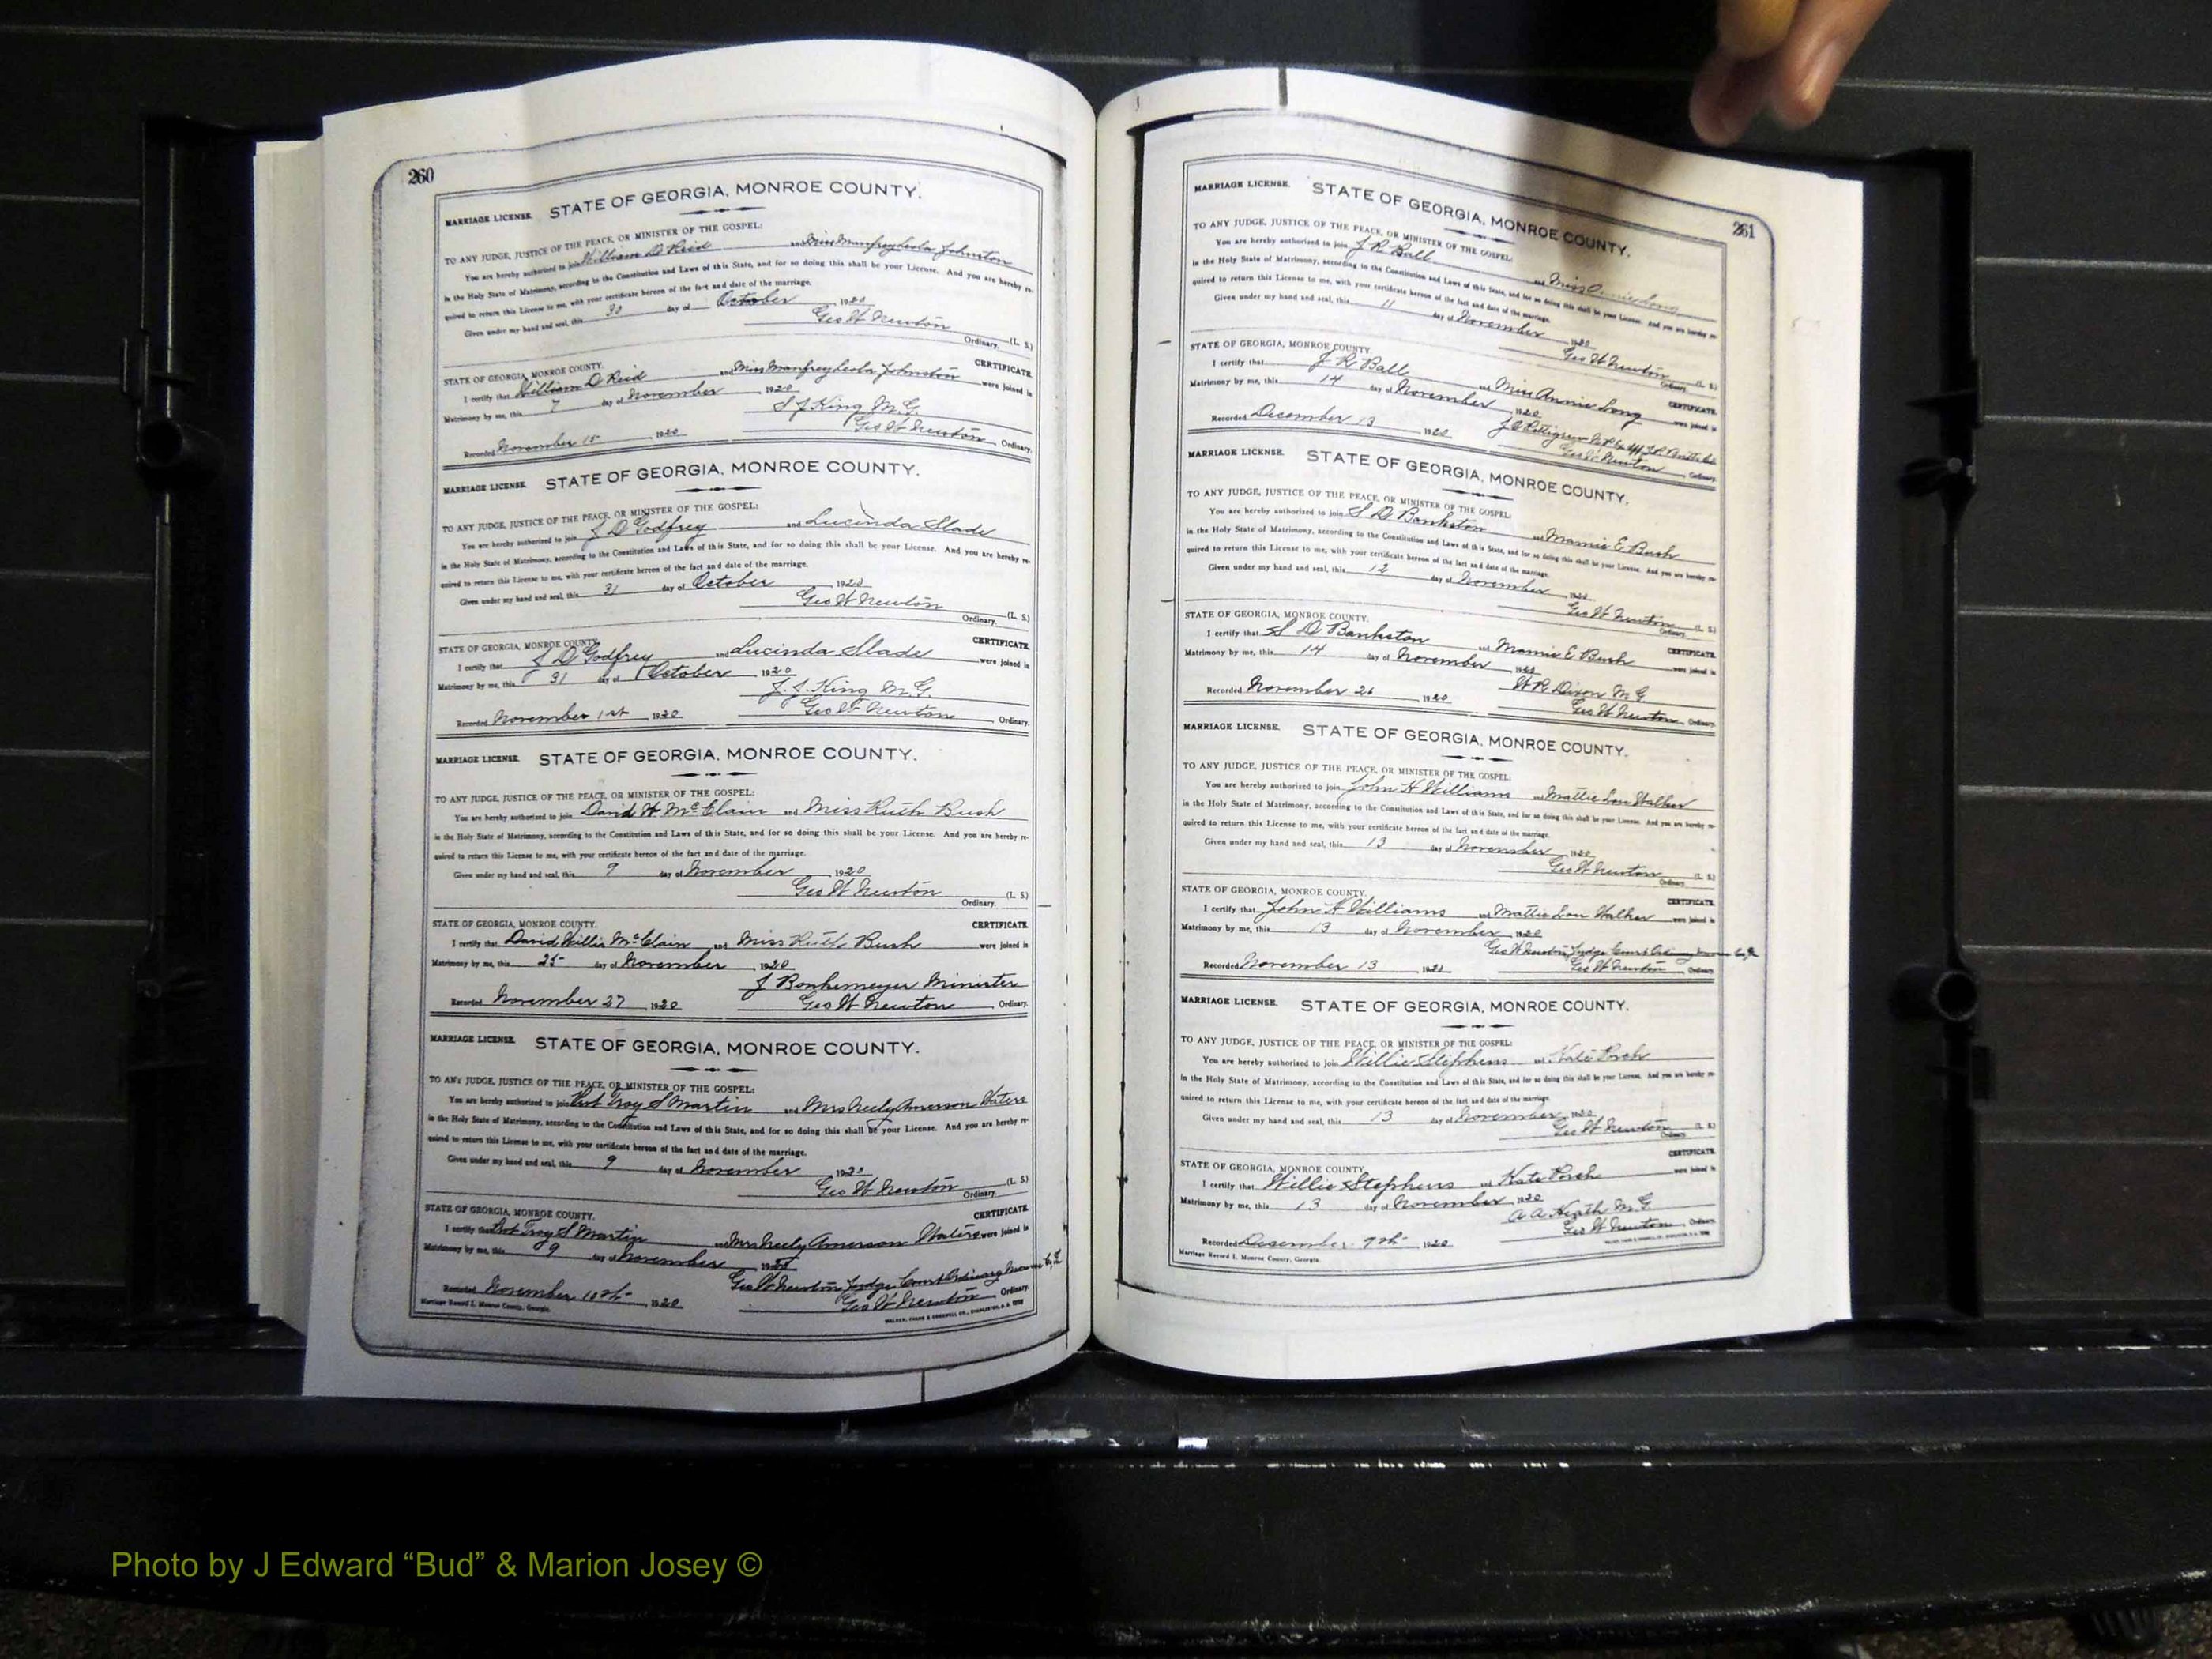 260
MARRIAGE LICENSE. STATE OF GEORGIA, MONROE COUNTY.
TO ANY JUDGE, JUSTICE OF THE PEACE, OR MINISTER OF THE GOSPEL:
You are hereby authorized to join William D Reid and Miss Manfrey Leola Johnston
in the Holy State of Matrimony, according to the Constitution and Laws of this State, and for so doing this shall be your License. And you are hereby re-
quired to return this License to me, with your certificate hereon of the fact and date of the marriage.
Given under my hand and seal, this 30 day of October 1920
Geo W Newton (L. S.)
Ordinary.
STATE OF GEORGIA, MONROE COUNTY. CERTIFICATE.
I certify that William D Reid and Miss Manfrey Leola Johnston were joined in
Matrimony by me, this 7 day of November 1920
S J King M.G.
Recorded November 15 1920 Geo W Newton Ordinary.
MARRIAGE LICENSE. STATE OF GEORGIA, MONROE COUNTY.
TO ANY JUDGE, JUSTICE OF THE PEACE, OR MINISTER OF THE GOSPEL:
You are hereby authorized to join J D Godfrey and Lucinda Slade
in the Holy State of Matrimony, according to the Constitution and Laws of this State, and for so doing this shall be your License. And you are hereby re-
quired to return this License to me, with your certificate hereon of the fact and date of the marriage.
Given under my hand and seal, this 31 day of October 1920
Geo W Newton (L. S.)
Ordinary.
STATE OF GEORGIA, MONROE COUNTY. CERTIFICATE.
I certify that J D Godfrey and Lucinda Slade were joined in
Matrimony by me, this 31 day of October 1920
King M.G.
Recorded November 1st 1920 Geo W Newton Ordinary.
MARRIAGE LICENSE. STATE OF GEORGIA, MONROE COUNTY.
TO ANY JUDGE, JUSTICE OF THE PEACE, OR MINISTER OF THE GOSPEL:
You are hereby authorized to join David W McClain and Miss Ruth Bush
in the Holy State of Matrimony, according to the Constitution and Laws of this State, and for so doing this shall be your License. And you are hereby re-
quired to return this License to me, with your certificate hereon of the fact and date of the marriage.
Given under my hand and seal, this 9 day of November 1920
Geo W Newton (L. S.)
Ordinary.
STATE OF GEORGIA, MONROE COUNTY. CERTIFICATE.
I certify that David Willis McClain and Miss Ruth Bush were joined in
Matrimony by me, this 25 day of November 1920
J Bonhemeyer Minister
Recorded November 27 1920 Geo W Newton Ordinary.
MARRIAGE LICENSE. STATE OF GEORGIA, MONROE COUNTY.
TO ANY JUDGE, JUSTICE OF THE PEACE, OR MINISTER OF THE GOSPEL:
You are hereby authorized to join Troy S Martin and Mrs Neely Amerson Waters
in the Holy State of Matrimony, according to the Constitution and Laws of this State, and for so doing this shall be your License. And you are hereby re-
quired to return this License to me, with your certificate hereon of the fact and date of the marriage.
Given under my hand and seal, this 9 day of November 1920
Geo W Newton (L. S.)
Ordinary.
STATE OF GEORGIA, MONROE COUNTY. CERTIFICATE.
I certify that Troy S Martin and Mrs Neely Amerson Waters were joined in
Matrimony by me, this 9 day of November 1920
Geo W Newton, Judge Court Ordinary Monroe Co, Ga
Recorded November 10th 1920 Geo W Newton Ordinary.
Marriage Record I. Monroe County, Georgia.
261
MARRIAGE LICENSE. STATE OF GEORGIA, MONROE COUNTY.
TO ANY JUDGE, JUSTICE OF THE PEACE, OR MINISTER OF THE GOSPEL:
You are hereby authorized to join J R Ball and Miss Annie Long
in the Holy State of Matrimony, according to the Constitution and Laws of this State, and for so doing this shall be your License. And you are hereby re-
quired to return this License to me, with your certificate hereon of the fact and date of the marriage.
Given under my hand and seal, this 11 day of November 1920
Geo W Newton (L. S.)
Ordinary.
STATE OF GEORGIA, MONROE COUNTY. CERTIFICATE.
I certify that J R Ball and Miss Annie Long were joined in
Matrimony by me, this 14 day of November 1920
Recorded December 13 1920 Geo W Newton Ordinary.
MARRIAGE LICENSE. STATE OF GEORGIA, MONROE COUNTY.
TO ANY JUDGE, JUSTICE OF THE PEACE, OR MINISTER OF THE GOSPEL:
You are hereby authorized to join S D Bankston and Mamie E Bush
in the Holy State of Matrimony, according to the Constitution and Laws of this State, and for so doing this shall be your License. And you are hereby re-
quired to return this License to me, with your certificate hereon of the fact and date of the marriage.
Given under my hand and seal, this 12 day of November 1920
Geo W Newton (L. S.)
Ordinary.
STATE OF GEORGIA, MONROE COUNTY. CERTIFICATE.
I certify that S D Bankston and Mamie E Bush were joined in
Matrimony by me, this 14 day of November 1920
W R Dixon M.G.
Recorded November 26 1920 Geo W Newton Ordinary.
MARRIAGE LICENSE. STATE OF GEORGIA, MONROE COUNTY.
TO ANY JUDGE, JUSTICE OF THE PEACE, OR MINISTER OF THE GOSPEL:
You are hereby authorized to join John H Williams and Mattie Lou Walker
in the Holy State of Matrimony, according to the Constitution and Laws of this State, and for so doing this shall be your License. And you are hereby re-
quired to return this License to me, with your certificate hereon of the fact and date of the marriage.
Given under my hand and seal, this 13 day of November 1920
Geo W Newton (L. S.)
Ordinary.
STATE OF GEORGIA, MONROE COUNTY. CERTIFICATE.
I certify that John H Williams and Mattie Lou Walker were joined in
Matrimony by me, this 13 day of November 1920
Geo W Newton, Judge Court Ordinary Monroe Co, Ga
Recorded November 13 Geo W Newton Ordinary.
MARRIAGE LICENSE. STATE OF GEORGIA, MONROE COUNTY.
TO ANY JUDGE, JUSTICE OF THE PEACE, OR MINISTER OF THE GOSPEL:
You are hereby authorized to join Willie Stephens and Kate Porch
in the Holy State of Matrimony, according to the Constitution and Laws of this State, and for so doing this shall be your License. And you are hereby re-
quired to return this License to me, with your certificate hereon of the fact and date of the marriage.
Given under my hand and seal, this 13 day of November 1920
Geo W Newton (L. S.)
Ordinary.
STATE OF GEORGIA, MONROE COUNTY. CERTIFICATE.
I certify that Willie Stephens and Kate Porch were joined in
Matrimony by me, this 13 day of November 1920
A A Heath M.G
Recorded December 9th 1920 Geo W Newton Ordinary.
Marriage Record I. Monroe County, Georgia.
Photo by J Edward “Bud” & Marion Josey ©